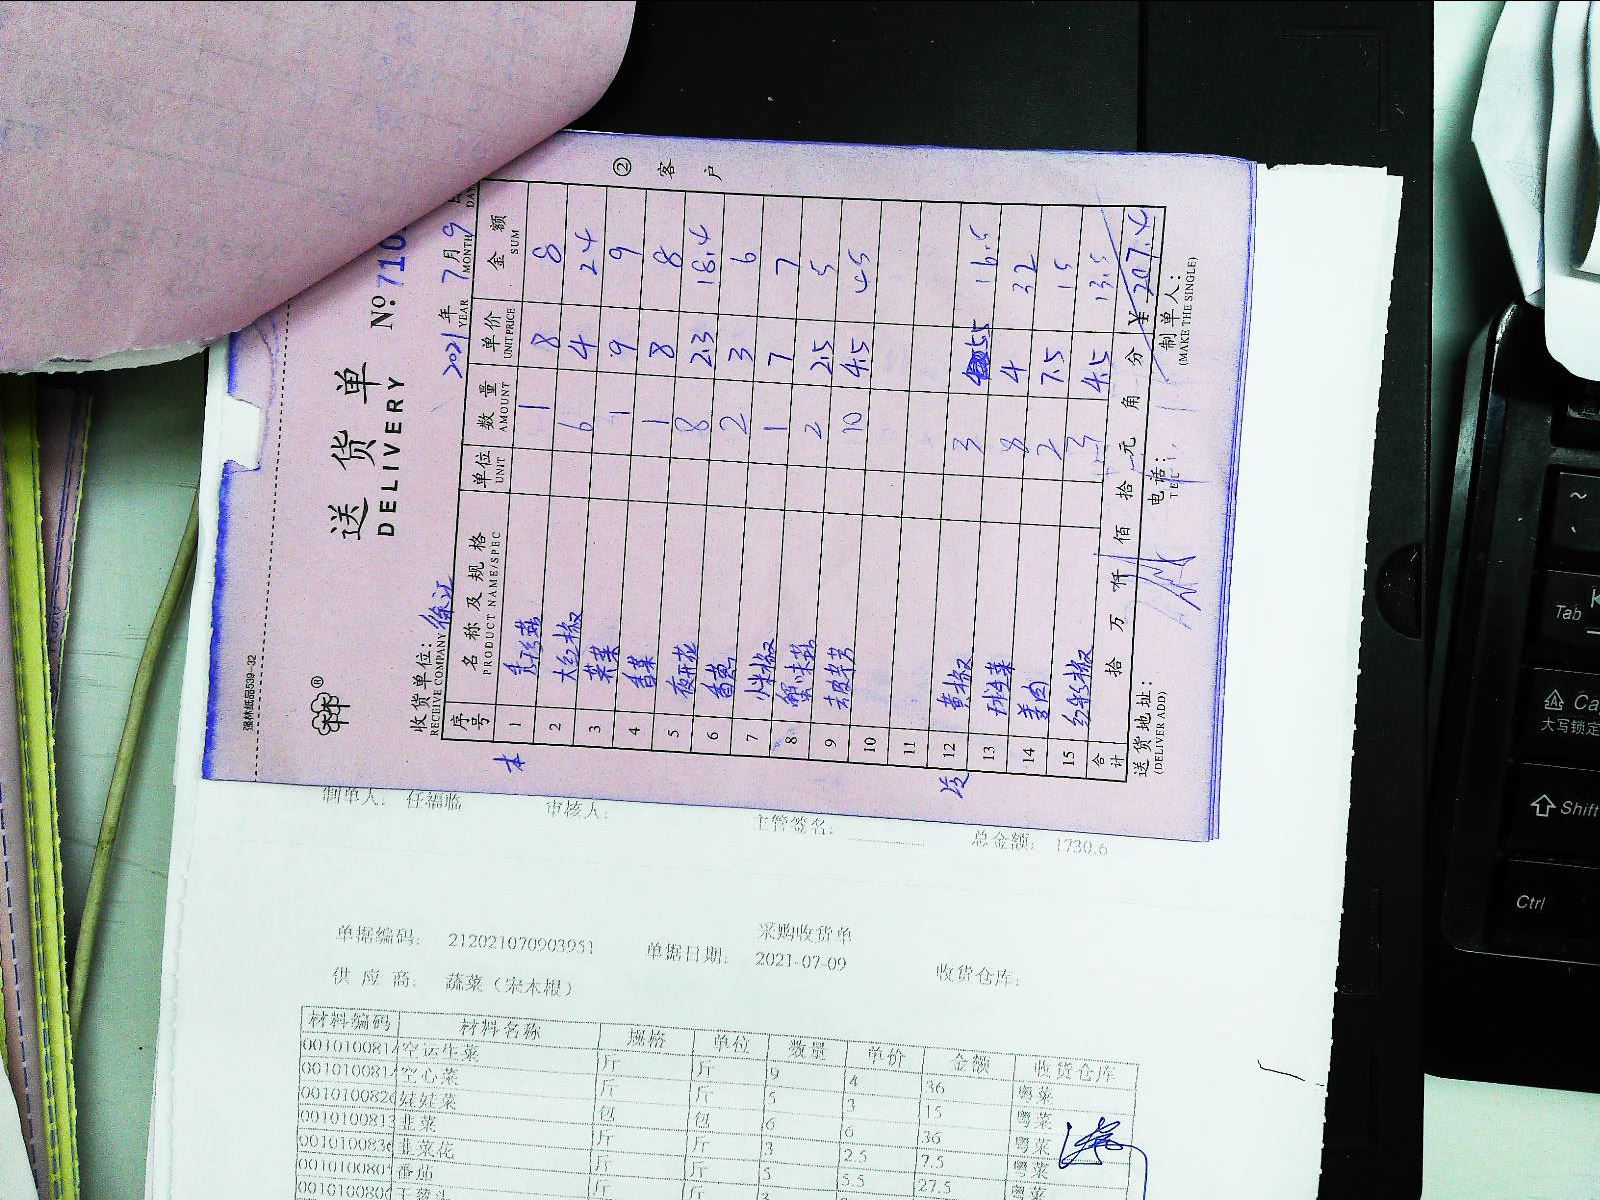 强林纸品539-32
®
送货单
DELIVERY
№710
② 客户
收货单位：徐江
RECEIVE COMPANY
2021年 7月9
YEAR MONTH DA
序号 名称及规格 单位 数量 单价 金额
PRODUCT NAME/SPEC UNIT AMOUNT UNIT PRICE SUM
本
1 1 8 8
2 大红椒 6 4 24
3 芹菜 1 9 9
4 香菜 1 8 8
5 夜开花 8 2.3 18.4
6 香葱 2 3 6
7 尖椒 1 7 7
8 蟹味菇 2 2.5 5
9 10 4.5 45
10
11
12 黄椒 3 5.5 16.5
13 球生菜 8 4 32
14 姜肉 2 7.5 15
15 红彩椒 3 4.5 13.5
合计 拾 万 仟 佰 拾 元 角 分 ¥207.4
送货地址： 电话： 制单人：
(DELIVER ADD) TEL (MAKE THE SINGLE)
制单人： 任福临 审核人： 主管签名： 总金额： 1730.6
采购收货单
单据编码： 212021070903951 单据日期： 2021-07-09 收货仓库：
供应商： 蔬菜（宋木根）
材料编码 材料名称 规格 单位 数量 单价 金额 收货仓库
001010081 空运生菜 斤 斤 9 4 36 粤菜
001010081 空心菜 斤 斤 5 3 15 粤菜
001010082 娃娃菜 包 包 6 6 36 粤菜
001010081 韭菜 斤 斤 3 2.5 7.5 粤菜
001010083 韭菜花 斤 斤 5 5.5 27.5 粤菜
001010080 番茄 斤 斤 3
001010080
~
Tab
Ca
大写锁定
Shift
Ctrl